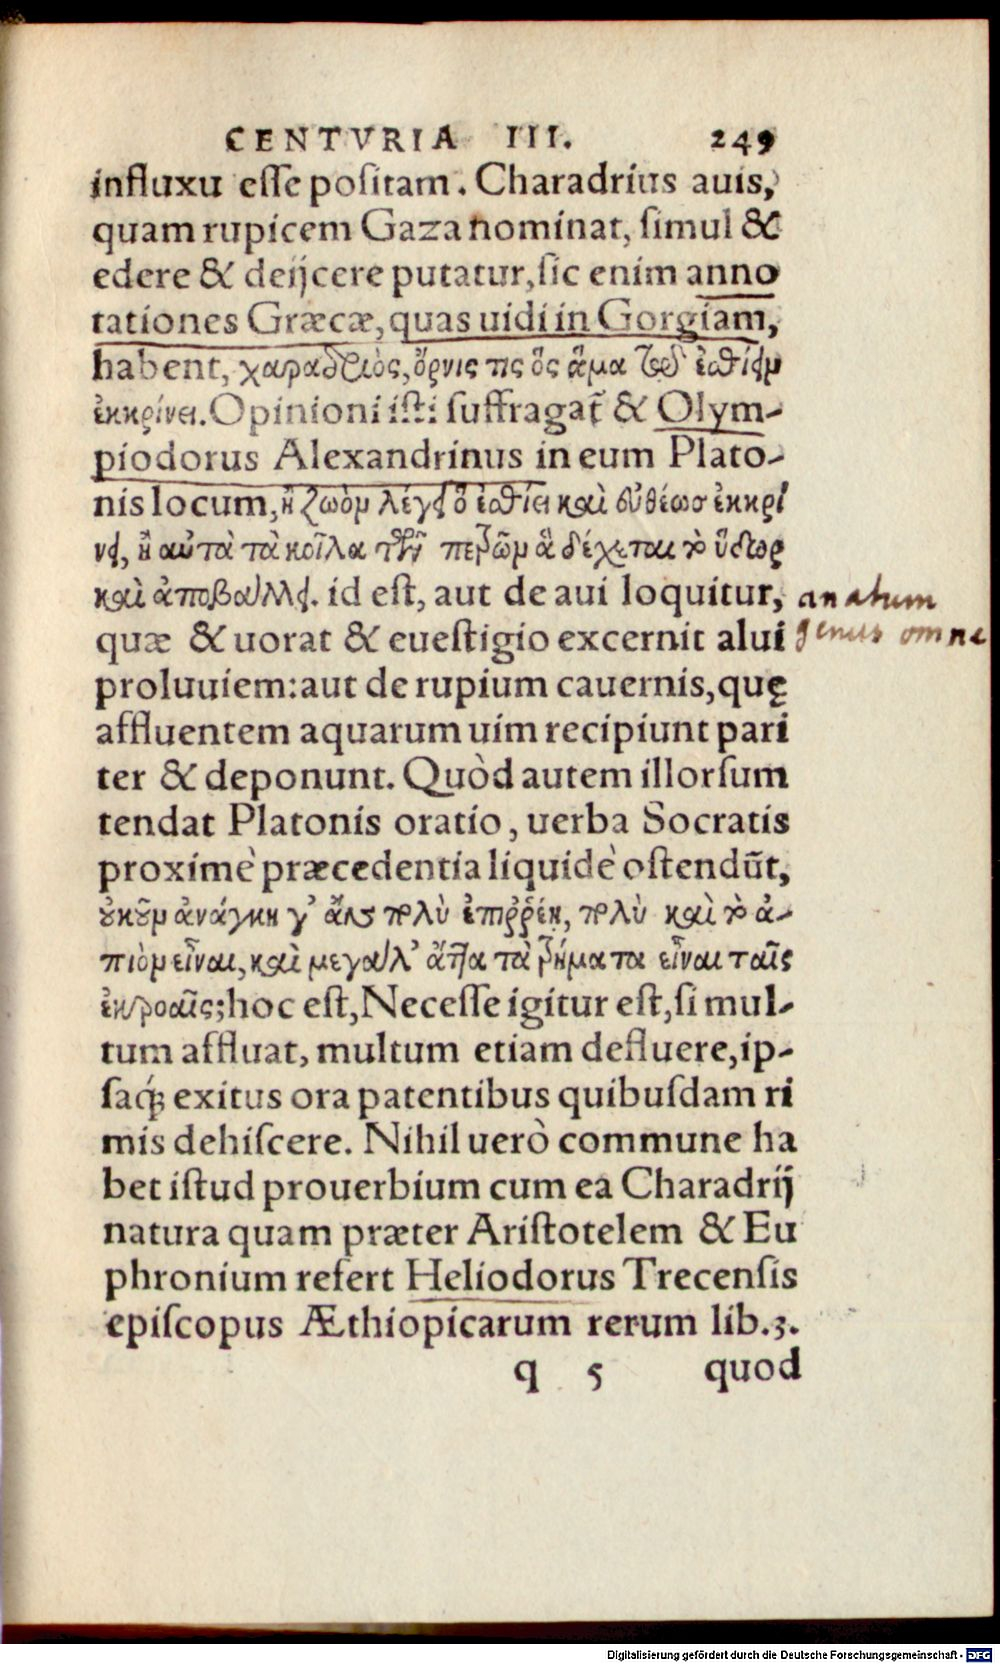 CENTVRIA III. 249
influxu esse positam. Charadrius auis,
quam rupicem Gaza nominat, simul &
edere & deijcere putatur, sic enim anno
tationes Græcæ, quas uidi in Gorgiam,
habent, χαραδριὸς, ὄρνις τις ὃς ἅμα τῷ ἐσθίειν
ἐκκρίνει. Opinioni isti suffragat̃ & Olym-
piodorus Alexandrinus in eum Plato-
nis locum, ἢ ζωὸν λέγει ὃ ἐσθίει καὶ εὐθέωσ ἐκκρί
νει, ἢ αὐτὰ τὰ κοῖλα τῶν πετρῶν ἃ δέχεται τὸ ὕδωρ
καὶ ἀποβάλλει. id est, aut de aui loquitur, anatum
quæ & uorat & euestigio excernit alui genus omne
proluuiem: aut de rupium cauernis, quę
affluentem aquarum uim recipiunt pari
ter & deponunt. Quòd autem illorsum
tendat Platonis oratio, uerba Socratis
proximè præcedentia liquidè ostendũt,
οὐκοῦν ἀνάγκη γ' ἂν πολὺ ἐπιῤῥέῃ, πολὺ καὶ τὸ ἀ-
πιὸν εἶναι, καὶ μεγάλ' ἄττα τὰ τρήματα εἶναι ταῖς
ἐκροαῖς; hoc est, Necesse igitur est, si mul-
tum affluat, multum etiam defluere, ip-
saq́; exitus ora patentibus quibusdam ri
mis dehiscere. Nihil uerò commune ha
bet istud prouerbium cum ea Charadrij
natura quam præter Aristotelem & Eu
phronium refert Heliodorus Trecensis
episcopus Æthiopicarum rerum lib.3.
q 5 quod
Digitalisierung gefördert durch die Deutsche Forschungsgemeinschaft - DFG